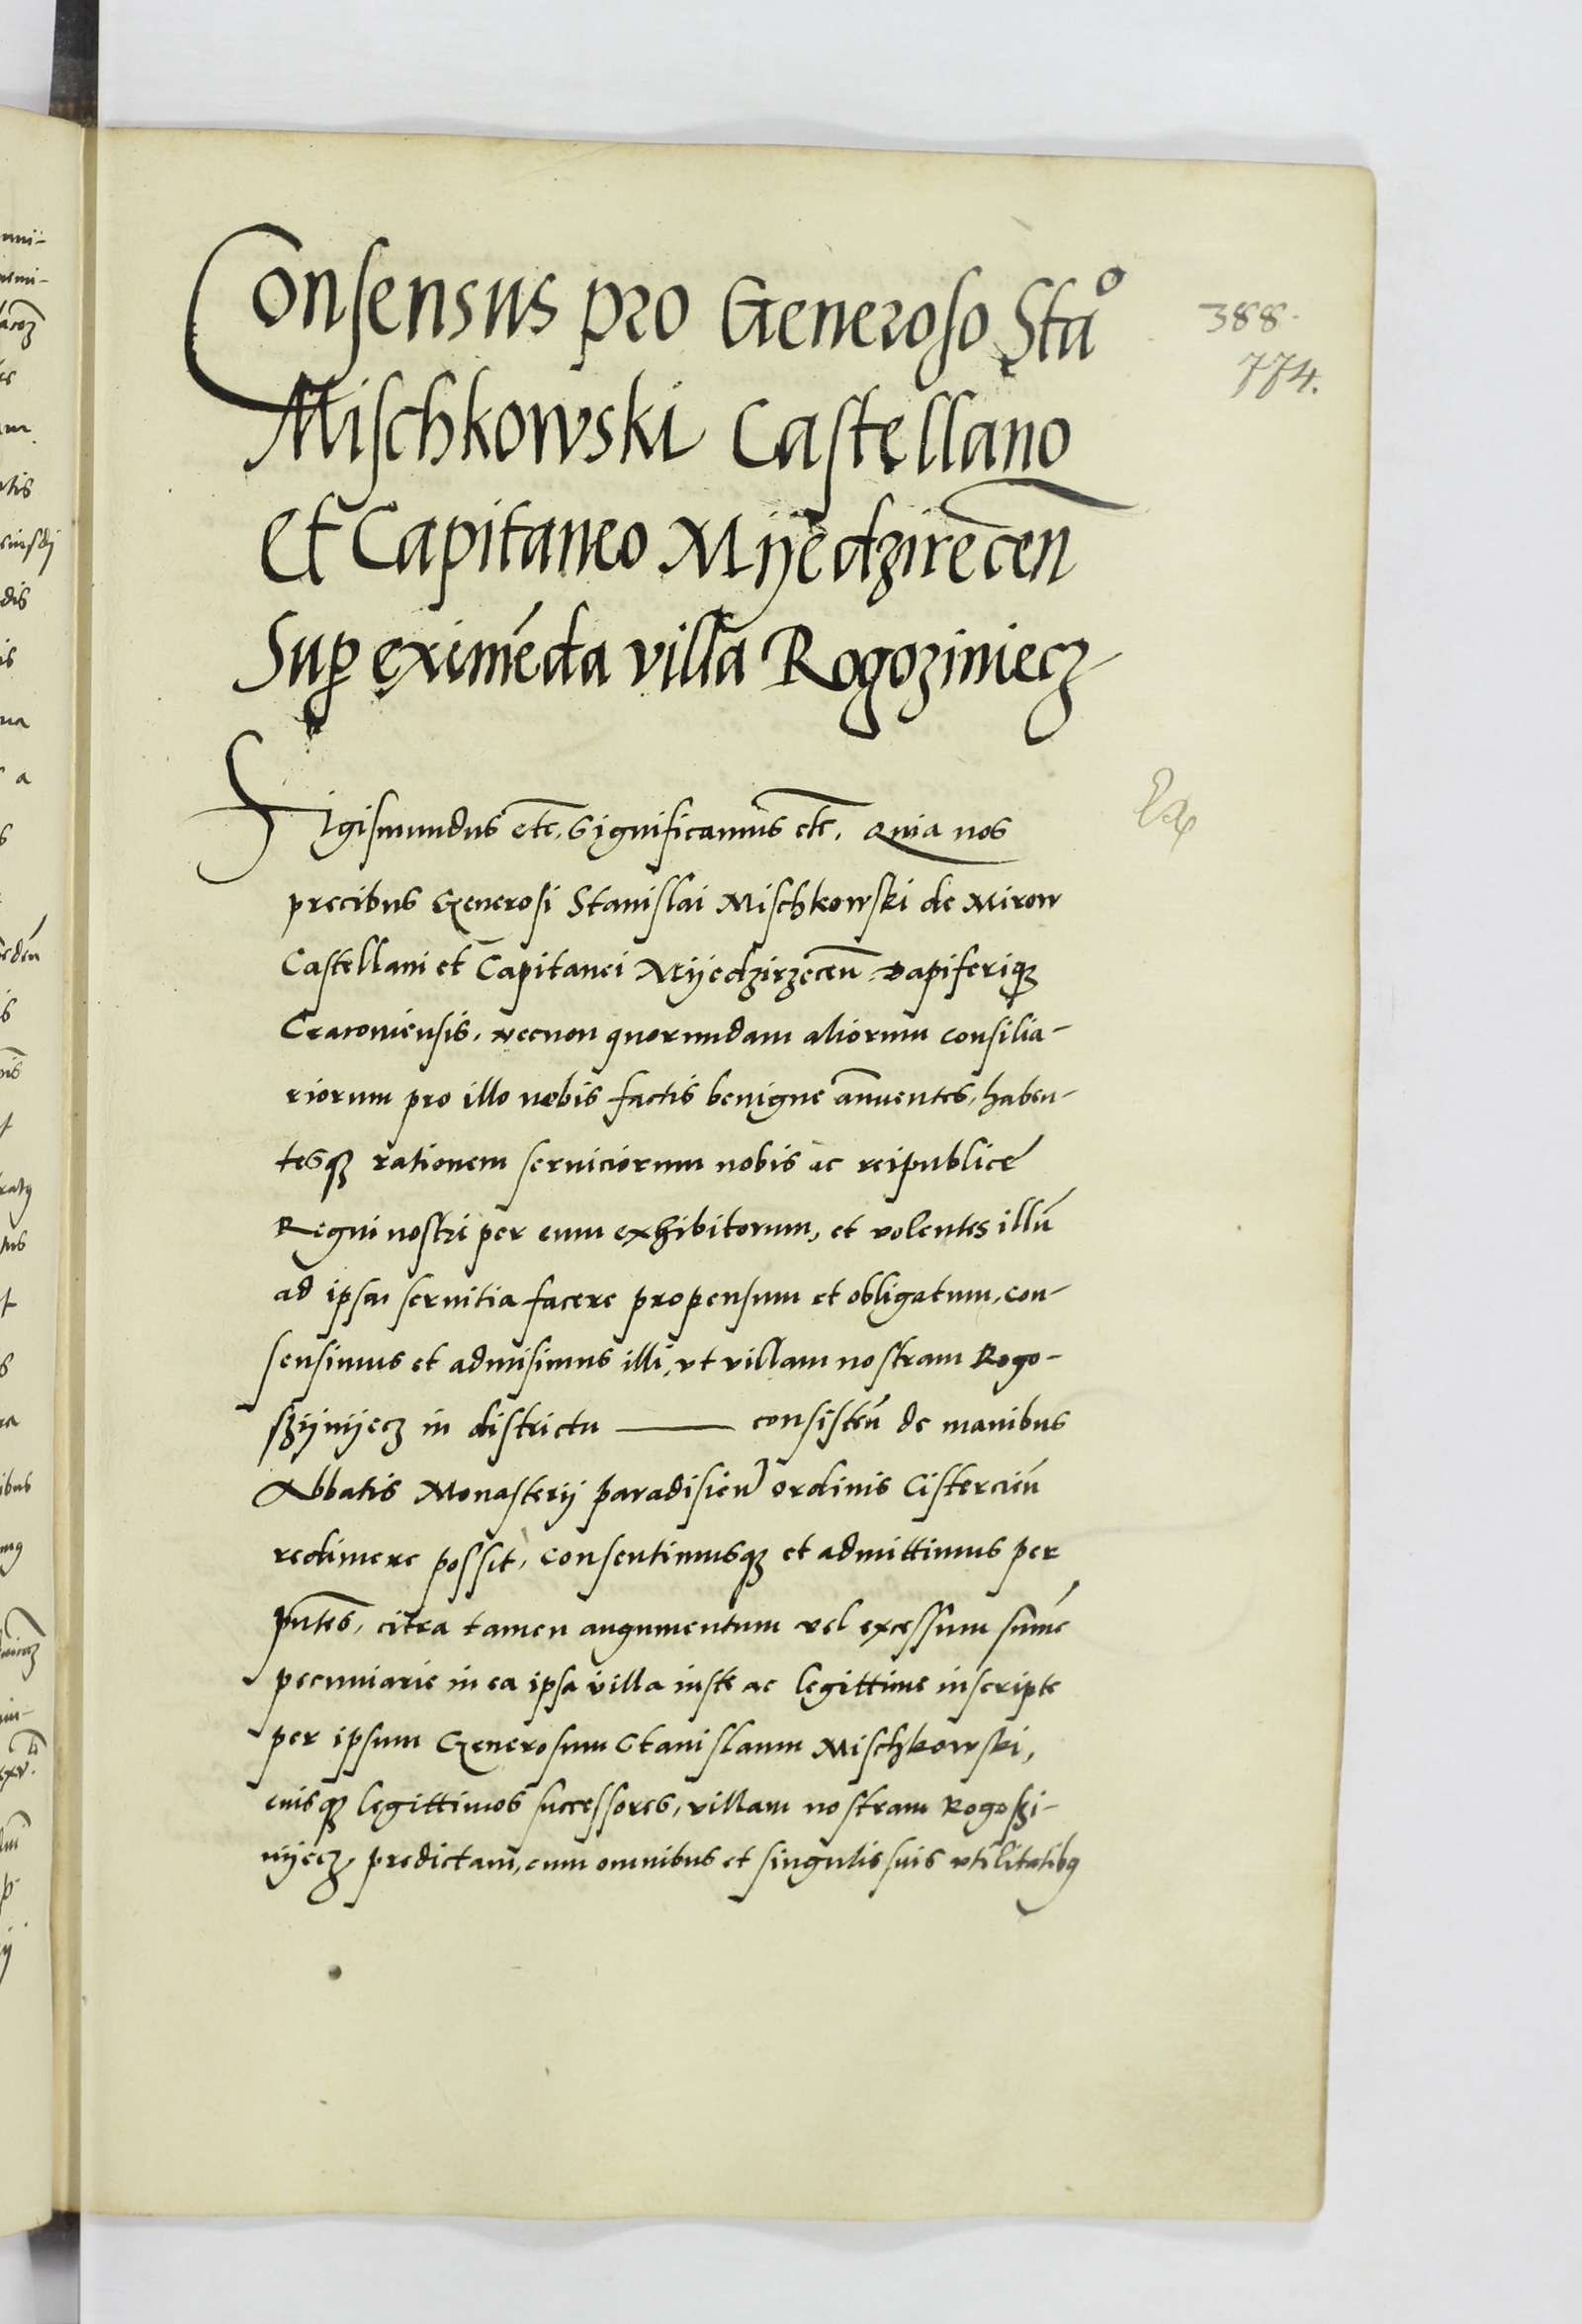 Consensus pro Generoso Sta°
388.
774.
Mischkowski Castellano
Et Capitaneo Mijedzirecen̄
Sup eximēda villa Rogoziniecz
Sigismundus etc. Significamus etc. Quia nos
precibus Generosi Stanislai Mischkowski de Mirow
Castellani et Capitanei Mijedzirzecen̄ dapiferiqꝫ
Cracoviensis, necnon quorundam aliorum consilia-
riorum pro illo nobis factis benigne annuentes, haben-
tesqꝫ rationem serviciorum nobis ac reipublice
Regni nostri per eum exhibitorum, et volentes illū
ad ipsa servitia facere propensum et obligatum, con-
sensimus et admisimus illi, vt villam nostram Rogo-
szijnijecz in districtu ——— consisten̄ de manibus
Abbatis Monasterij paradisien̄ ordinis Cistercien̄
redimere possit, consentimusqꝫ et admittimus per
pn̄tes, citra tamen augumentum vel excessum sum̄e
pecuniarie in ea ipsa villa iuste ac legittime inscripte
per ipsum Generosum Stanislaum Mischkowski,
eiusqꝫ legittimos successores, villam nostram Rogoszi-
nijecz predictam, cum omnibus et singulis suis vtilitatibꝫ